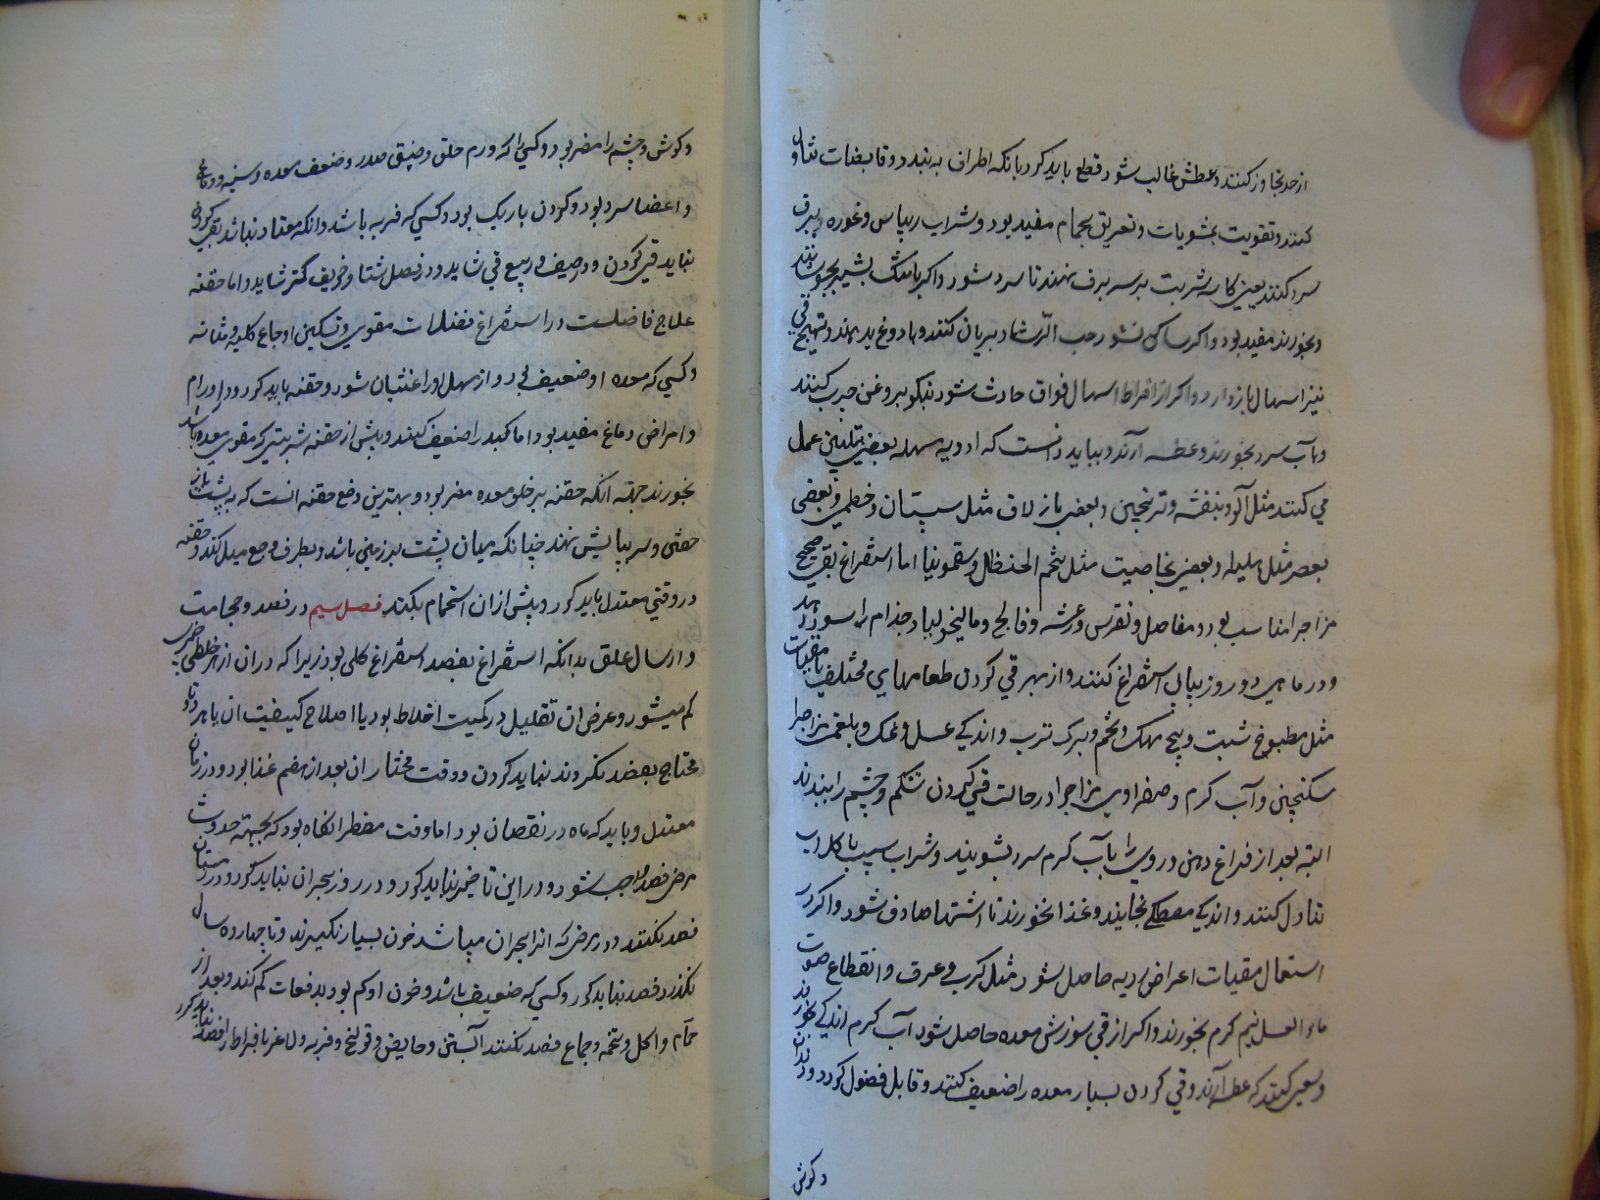 از حد تجاوز کنند و عطش غالب شود قطع باید کرد بانکه اطراف به بندد و قابضات تناول
کنند و تقویت بمشویات و تعریق بحمام مفید بود و شراب ریباس و غوره ببرف
سرد کنند یعنی کاسه شربت بر سر برف نهند تا سرد شود و اکر بامشک بشیر بجوشانند
و بخورند مفید بود و اکر ساکن نشود حب الرشاد بریان کنند و با دوغ بدهند و تهییج قی
نیز اسهال باز دارد و اکر از افراط اسهال فواق حادث شود نیکو بروغن چرب کنند
و باب سرد بخورند و عطسه آرند و بباید دانست که ادویه مسهله بعضی بتلیین عمل
می کنند مثل آلو و بنفشه و ترنجبین و بعضی بازلاق مثل سپستان و خطمی و بعضی
بعصر مثل هلیله و بعضی بخاصیت مثل شحم الحنظل و سقمونیا اما استفراغ بقی صحیح
مزاجرا مناسب بود و مفاصل و نقرس و رعشه و فالج و مالیخولیا و جذام را سود دهد
و در ماهی دو روز پیاپی استفراغ کنند و از بهر قی کردن طعامهای مختلف با مقیات
مثل مطبوخ شبت و بیخ مهک و تخم و برک ترب و اندکی عسل و نمک و بلغمی مزاجرا
سکنجبین و آب کرم و صفراوی مزاجرا در حالت قی کردن شکم و چشم را ببندند
البته بعد از فراغ دهن و روی را بآب کرم سرد بشویند و شراب سیب با کلاب
تناول کنند و اندکی مصطکی بخایند و غذا نخورند تا اشتها صادف شود و اکر در
استعمال مقیات اعراض ردیه حاصل شود مثل کرب و عرق و انقطاع صوت
ماء العسل نیم کرم بخورند و اکر از قی سوزش معده حاصل شود آب کرم اندکی بخورند
و سعی کنند که عطسه آرند و قی کردن بسیار معده را ضعیف کنند و قابل فضول کردد و دندان
و کوش
و کوش و چشم را مضر بود و کسی را که ورم حلق و ضیق صدر و ضعف معده و سینه و دماغ
و اعضا سرد بود و کردن باریک بود و کسی که فربه باشد و انکه معتاد نباشد بقی کردن
نباید قی کردن و در صیف و ربیع قی شاید و در فصل شتا و خریف کمتر شاید و اما حقنه
علاج فاضلست در استفراغ فضلات مقوی و تسکین اوجاع کلیه و مثانه
و کسی که معده او ضعیف بود و از مسهل او را غثیان شود و حقنه باید کرد و در اورام
و امراض دماغ مفید بود اما کبد را ضعیف کند و پیش از حقنه شربتی که مقوی معده باشد
بخورند جهته انکه حقنه بر خلو معده مضر بود و بهترین وضع حقنه انست که به پشت باز
خفتی و سر ببالش نهند چنانکه میان پشت بر زمین باشد و بطرف وجع میل کند و حقنه
در وقتی معتدل باید کرد و پیش از ان استحمام بکنند فصل سیم در فصد و حجامت
و ارسال علق بدانکه استفراغ بفصد استفراغ کلی بود زیرا که در ان از هر خلطی چیزی
کم میشود و غرض ان تقلیل در کمیت اخلاط بود یا اصلاح کیفیت ان یا هر دو تا
محتاج بفصد نکردند نباید کردن و وقت مختار ان بعد از هضم غذا بود و در زمان
معتدل و باید که ماه در نقصان بود اما وقت مضطر انکاه بود که بجهته حدوث
مرض فصد واجب شود و در این تاخیر نباید کرد و در روز بحران نباید کرد و در زمستان
فصد نکنند و در مرض که انرا بحران میباشد خون بسیار نکیرند و تا چهارده سال
نکذرد فصد نباید کرد و کسی که ضعیف باشد و خون او کم بود بدفعات کم کند و بعد از
حمام و اکل و تخمه و جماع فصد نکنند آبستن و حایض و قولنج و فربه و لاغر بافراط را فصد نباید کرد